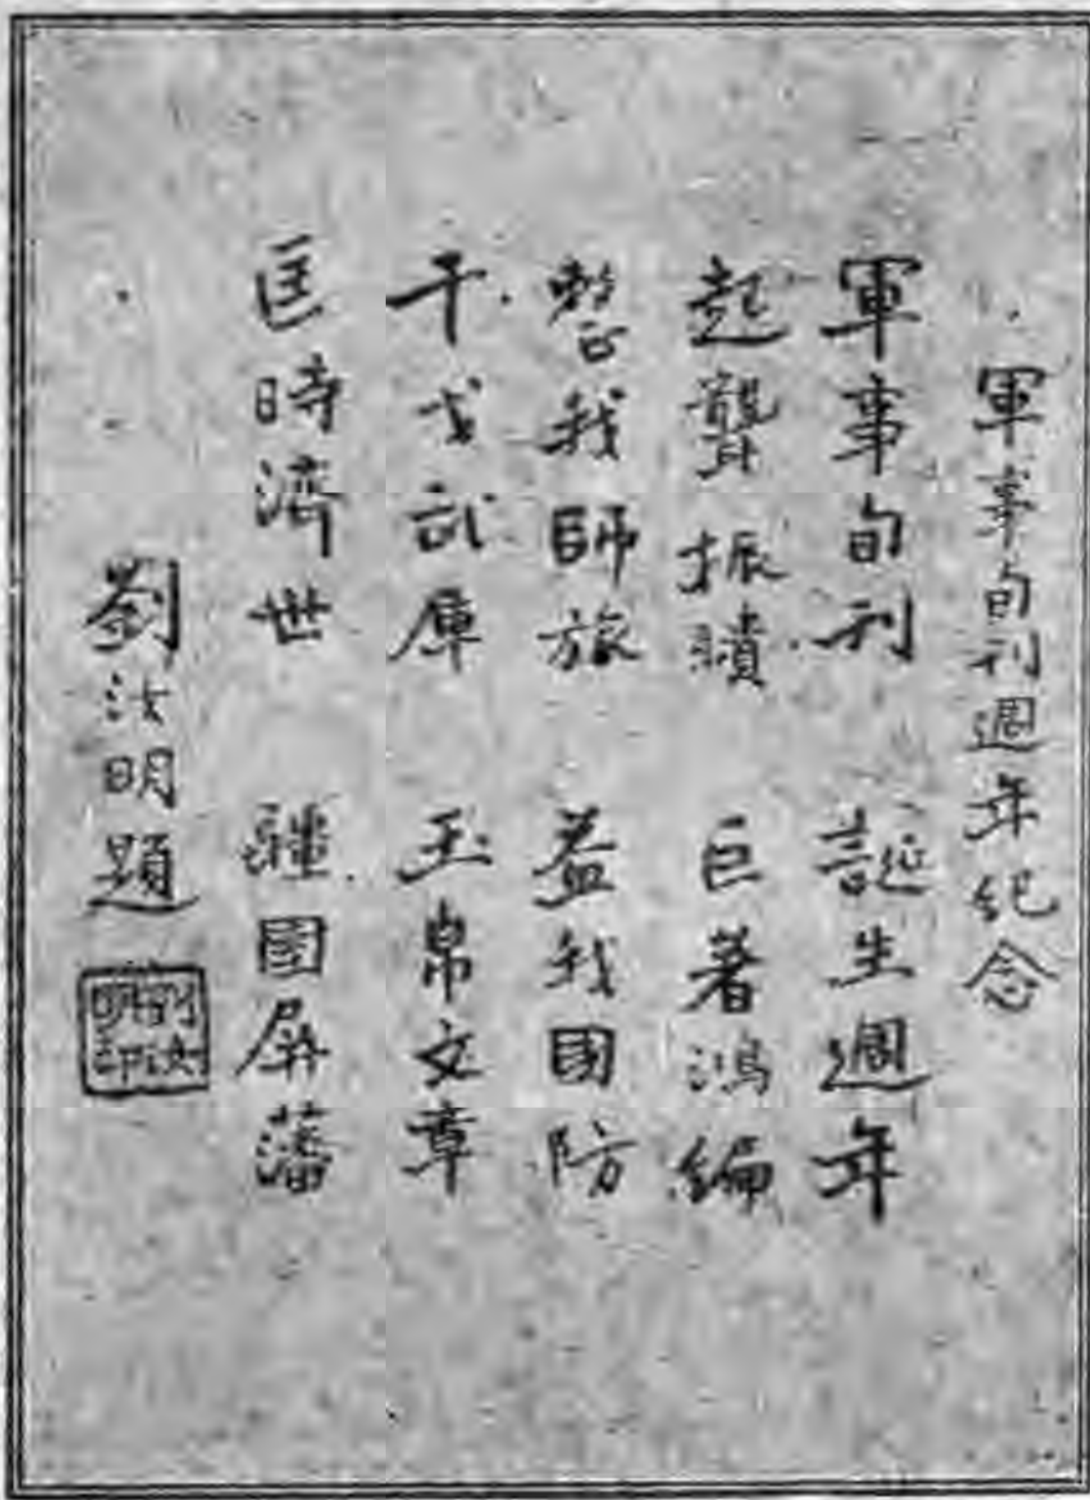 軍事旬刊週年紀念
軍事旬刊 誕生週年
起聾振聵 巨著鴻編
整我師旅 益我國防
干戈武庫 玉帛文章
匡時濟世 疆國屏藩
劉汝明題
劉汝明印